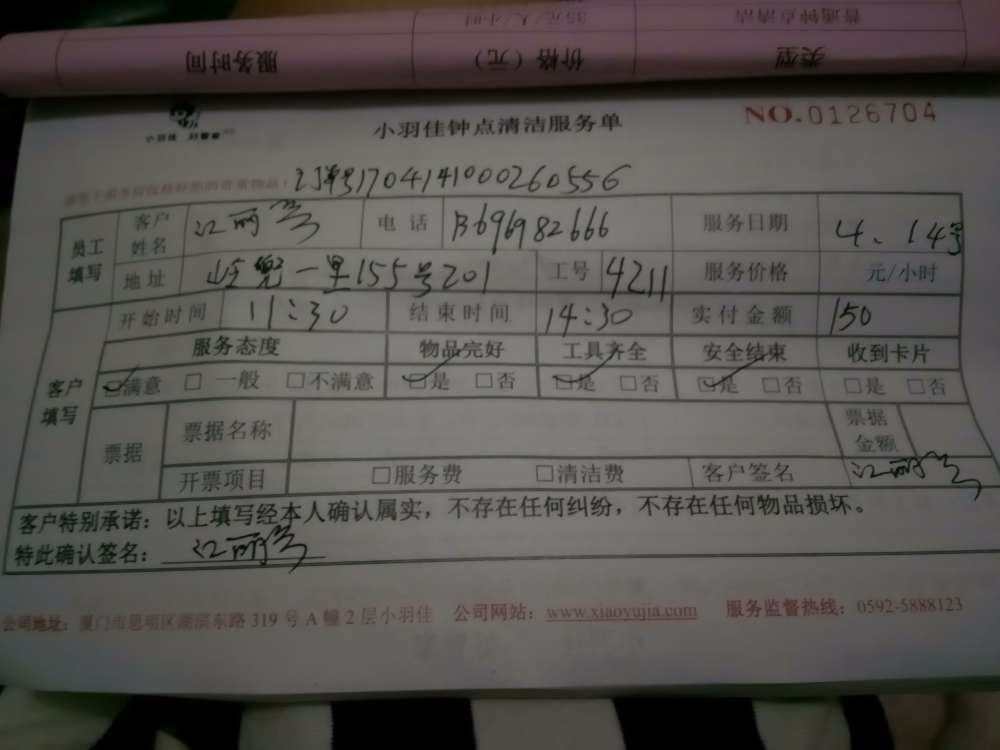 普通钟点清洁 35元/人/小时
类型 价格（元） 服务时间
小羽佳 好管家
小羽佳钟点清洁服务单 NO.0126704
订单号1704141000260556
员工填写 客户姓名 江丽 电话 13696982666 服务日期 4、14号
地址 岐兜一里155号201 工号 4211 服务价格 元/小时
客户填写 开始时间 11:30 结束时间 14:30 实付金额 150
服务态度 物品完好 工具齐全 安全结束 收到卡片
☑满意 □一般 □不满意 ☑是 □否 ☑是 □否 ☑是 □否 □是 □否
票据 票据名称 票据金额
开票项目 □服务费 □清洁费 客户签名 江丽
客户特别承诺：以上填写经本人确认属实，不存在任何纠纷，不存在任何物品损坏。
特此确认签名：江丽
公司地址：厦门市思明区湖滨东路319号A幢2层小羽佳 公司网站：www.xiaoyujia.com 服务监督热线：0592-5888123